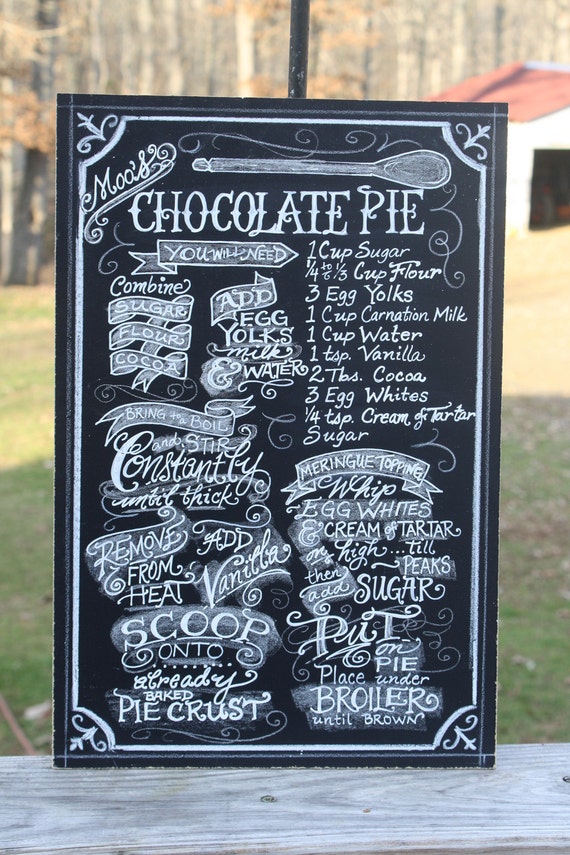 Moa's
CHOCOLATE PIE
YOU WILL NEED
1 Cup Sugar
1/4 to 1/3 Cup Flour
3 Egg Yolks
1 Cup Carnation Milk
1 Cup Water
1 tsp. Vanilla
2 Tbs. Cocoa
3 Egg Whites
1/4 tsp. Cream of Tartar
Sugar
Combine
SUGAR
FLOUR
COCOA
ADD
EGG
YOLKS
milk
& WATER
BRING to a BOIL
and STIR
Constantly
until thick
REMOVE
FROM
HEAT
ADD
Vanilla
SCOOP
ONTO
already
BAKED
PIE CRUST
MERINGUE TOPPING
Whip
EGG WHITES
& CREAM of TARTAR
on high...till
PEAKS
then
add SUGAR
PUT
on
PIE
Place under
BROILER
until BROWN